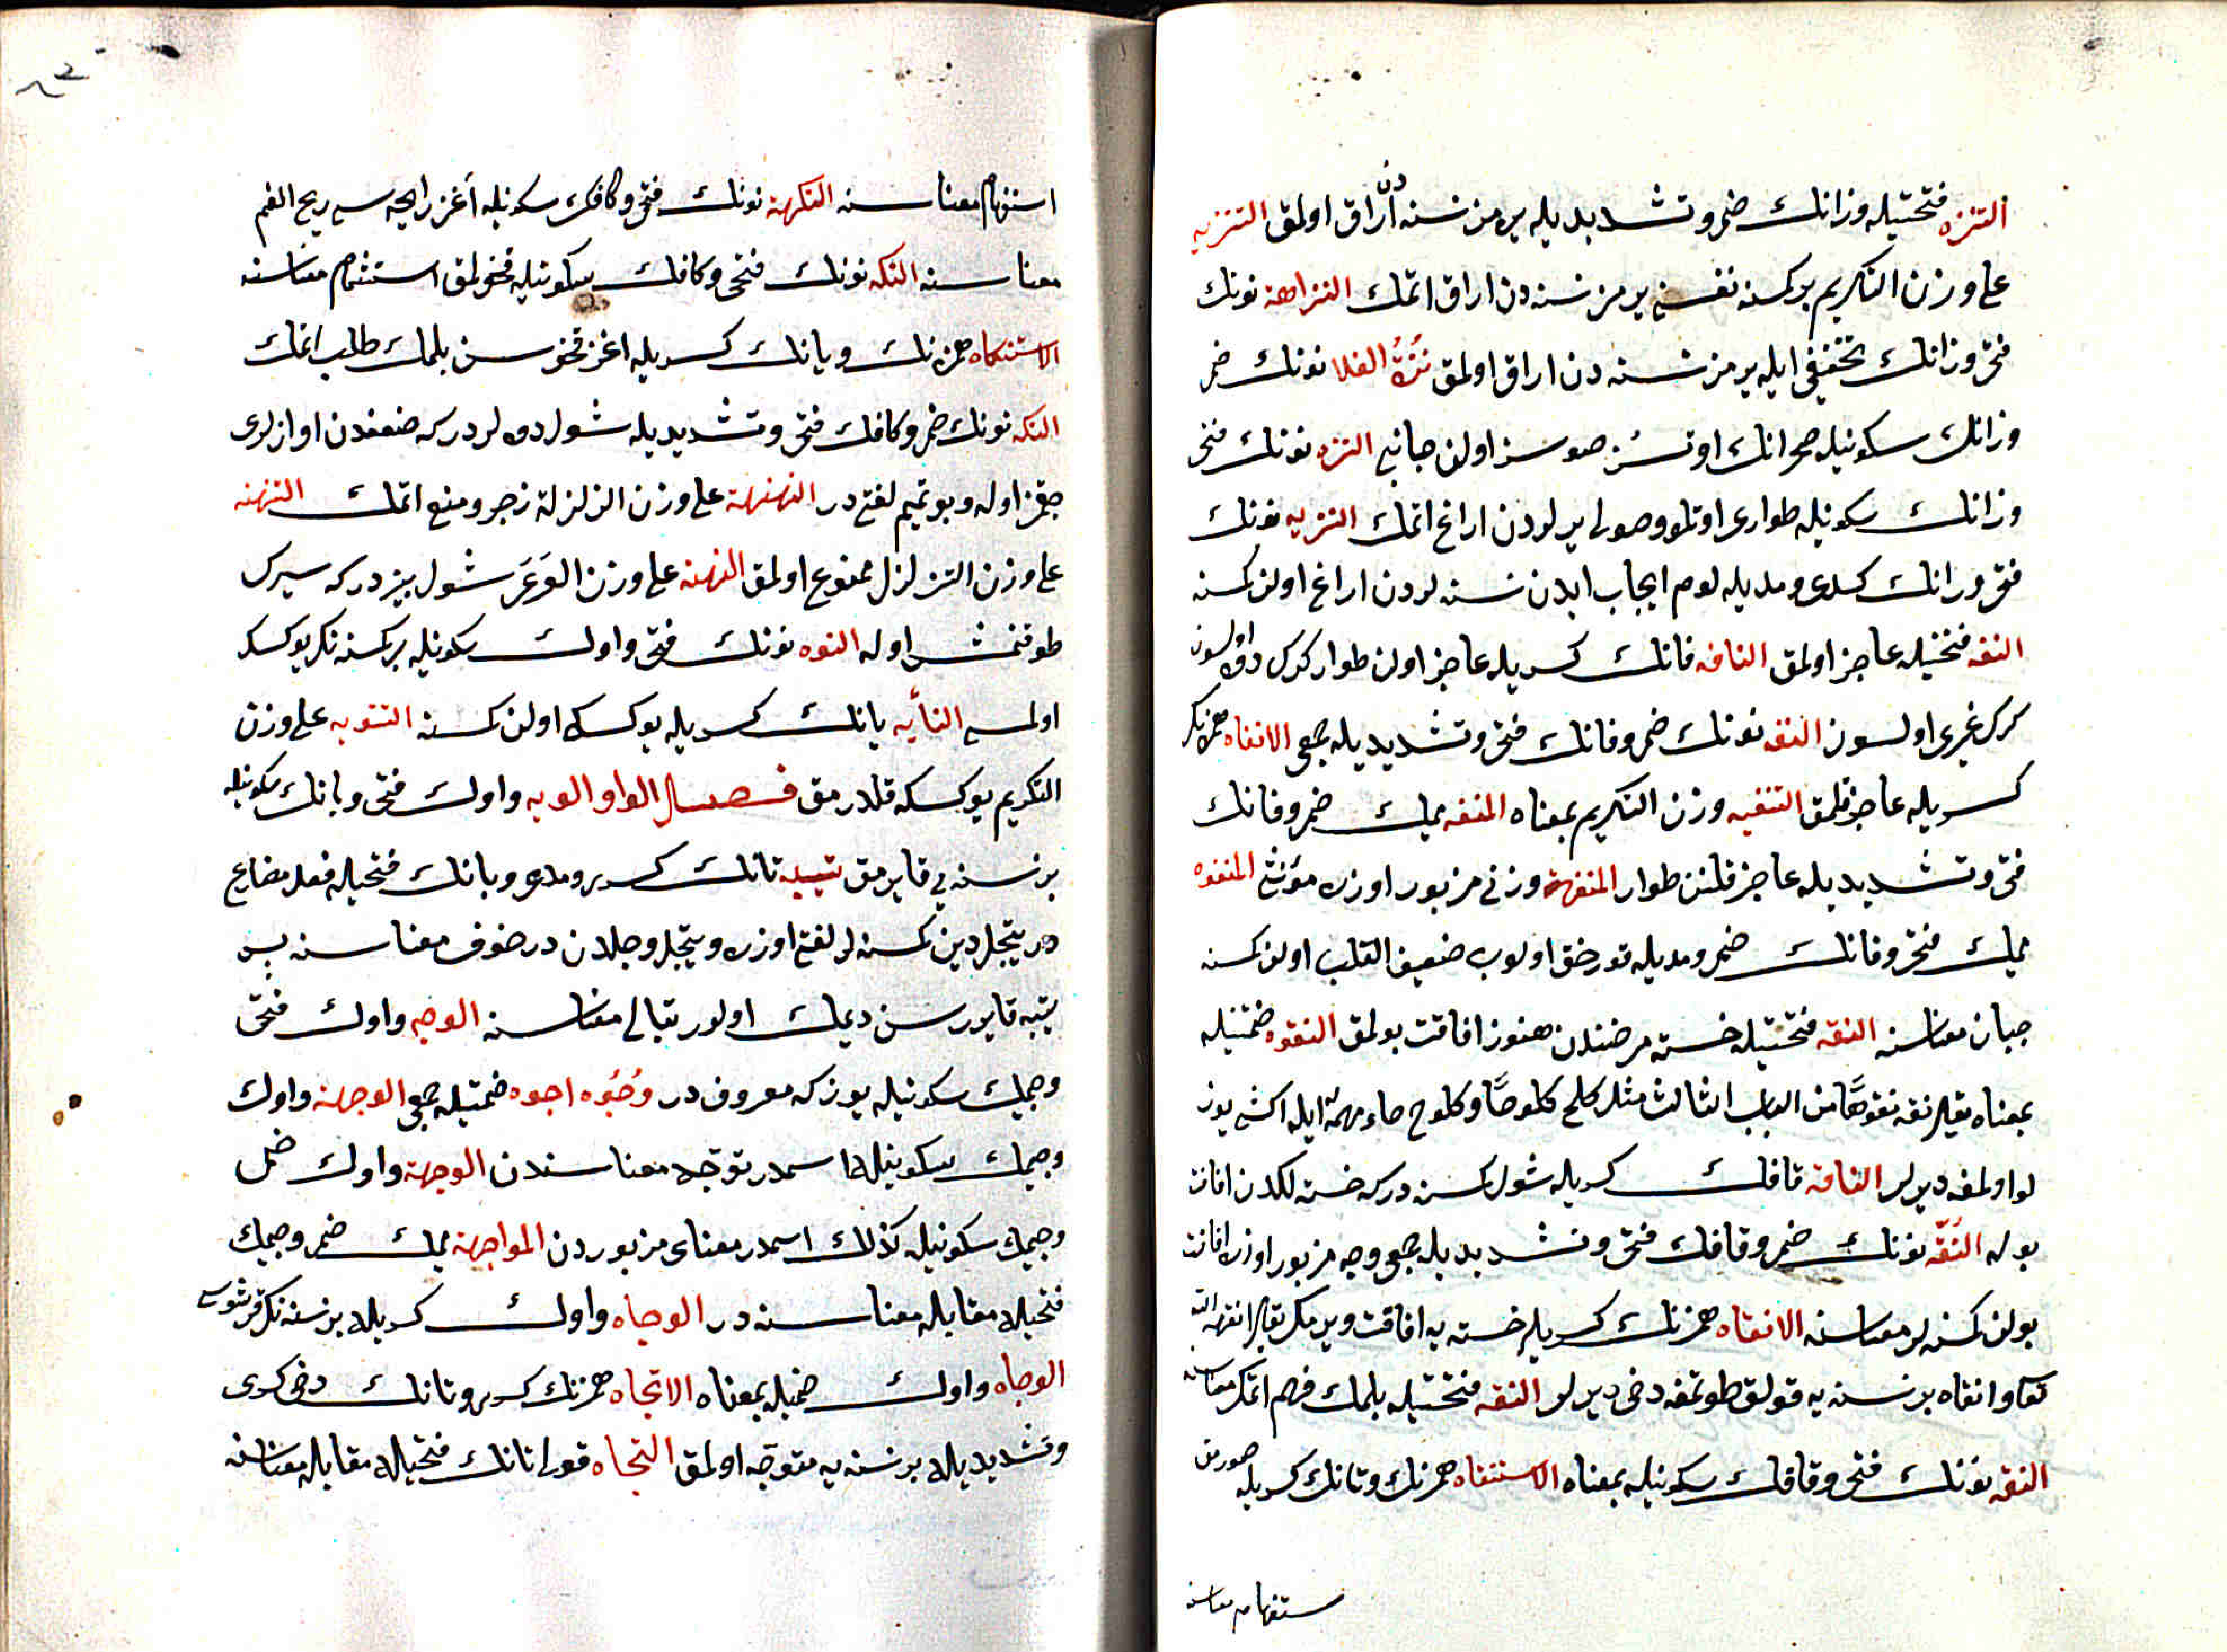 التنزه فتحتيله وزانك ضمى وتشديديله يرمز نسنه دن اراق اولمق التنزيه
على وزن التكريم بركسنه نفسنى يرمز نسنه دن اراق اتمك النزاهة نونك
فتحى وزانك تخفيفى ايله يرمز نسنه دن اراق اولمق نزه الفلا نونك ضمى
وزانك سكونيله صحرانك اوتسز صوسز اولن جانبى النزه نونك فتحى
وزانك سكونيله طوارى اوتلو وصولى يرلردن اراغ اتمك النزيه نونك
فتحى وزانك كسرى ومديله لوم ايجاب ايدن نسنه لردن اراغ اولن كسنه
النفه فتحتيله عاجز اولمق النافه فانك كسريله عاجز اولن طوار كرك دوه اولسون
كرك غيرى اولسون النفه نونك ضمى وفانك فتحى وتشديديله جمعى الانفاه همزنك
كسريله عاجز قلمق التنفيه وزن التكريم بمعناه المنفه ميمك ضمى وفانك
فتحى وتشديديله عاجز قلنن طوار المنفهة وزنى مزبور اوزره مؤنثى المنفوه
ميمك فتحى وفانك ضمى ومديله قورقق اولوب ضعيف القلب اولن كسنه
جبان معناسنه النقه فتحتيله خسته مرضندن هنوز افاقت بولمق النقوه ضمتيله
بمعناه يقال نقه نقوها من الباب الثالث مثل كلح كلوحا وكلوح حاء مهمله ايله اكشى يوز
لو اولمغه ديرلر الناقه قافك كسريله شول كسنه دركه خسته لكدن افاقت
بوله النقه نونك ضمى وقافك فتحى وتشديديله جمعى وجه مزبور اوزره افاقت
بولن كسنه لر معناسنه الانقاه همزنك كسريله خسته يه افاقت ويرمك يقال انقهه الله
تعالى وانقاه برنسنه يه قولق طوتمغه دخى ديرلر النقه فتحتيله بلمك فهم اتمك معناسنه
النقه نونك فتحى وقافك سكونيله بمعناه الاستنقاه همزنك وتانك كسريله
ستفهام معناسنه
استفهام معناسنه النكهة نونك فتحى وكافك سكونيله اغز رايحه سى ريح الفم
معناسنه النكه نونك فتحى وكافك سكونيله قخولمق استشمام معناسنه
الاستنكاه همزنك وتانك كسريله اغز قخوسن بلمك طلب اتمك
النكه نونك ضمى وكافك فتحى وتشديديله شول دوه لردركه ضعفندن اوازلرى
چقمز اوله وبو تميم لغتيدر النهنهة على وزن الزلزلة زجر ومنع اتمك التنهنه
على وزن التزلزل ممنوع اولمق النهنه على وزن العرعر شول بيزدركه سيرك
طوقنمش اوله النوه نونك فتحى واوك سكونيله بركسنه نك يوكسك
اولمسى النايه يانك كسريله يوكسك اولن كسنه التنويه على وزن
التكريم يوكسكه قلدرمق فصل الواو الوبه واوك فتحى وبانك سكونيله
برنسنه يى قايرمق تيبه تانك كسرى ومدى وبانك فتحيله فعل مضارع
در ييجل دين كسنه لر لغتى اوزره وييجل وجلدن در خوف معناسنه پس
تيبه قايورسن ديمك اولور تبالى معناسنه الوجه واوك فتحى
وجيمك سكونيله يوز كه معروفدر وجوه اجوه ضمتيله جمعى الوجهة واوك
وجيمك سكونيله اسمدر توجه معناسندن الوجهة واوك ضمى
وجيمك سكونيله كذلك اسمدر معناى مزبوردن المواجهة ميمك ضمى وجيمك
فتحيله مقابله معناسنه در الوجاه واوك كسريله برنسنه نك قرشوسى
الوجاه واوك ضميله بمعناه الاتجاه همزنك كسرى وتانك دخى كسرى
وتشديديله برنسنه يه متوجه اولمق التجاه قولى تانك فتحيله مقابله معناسنه